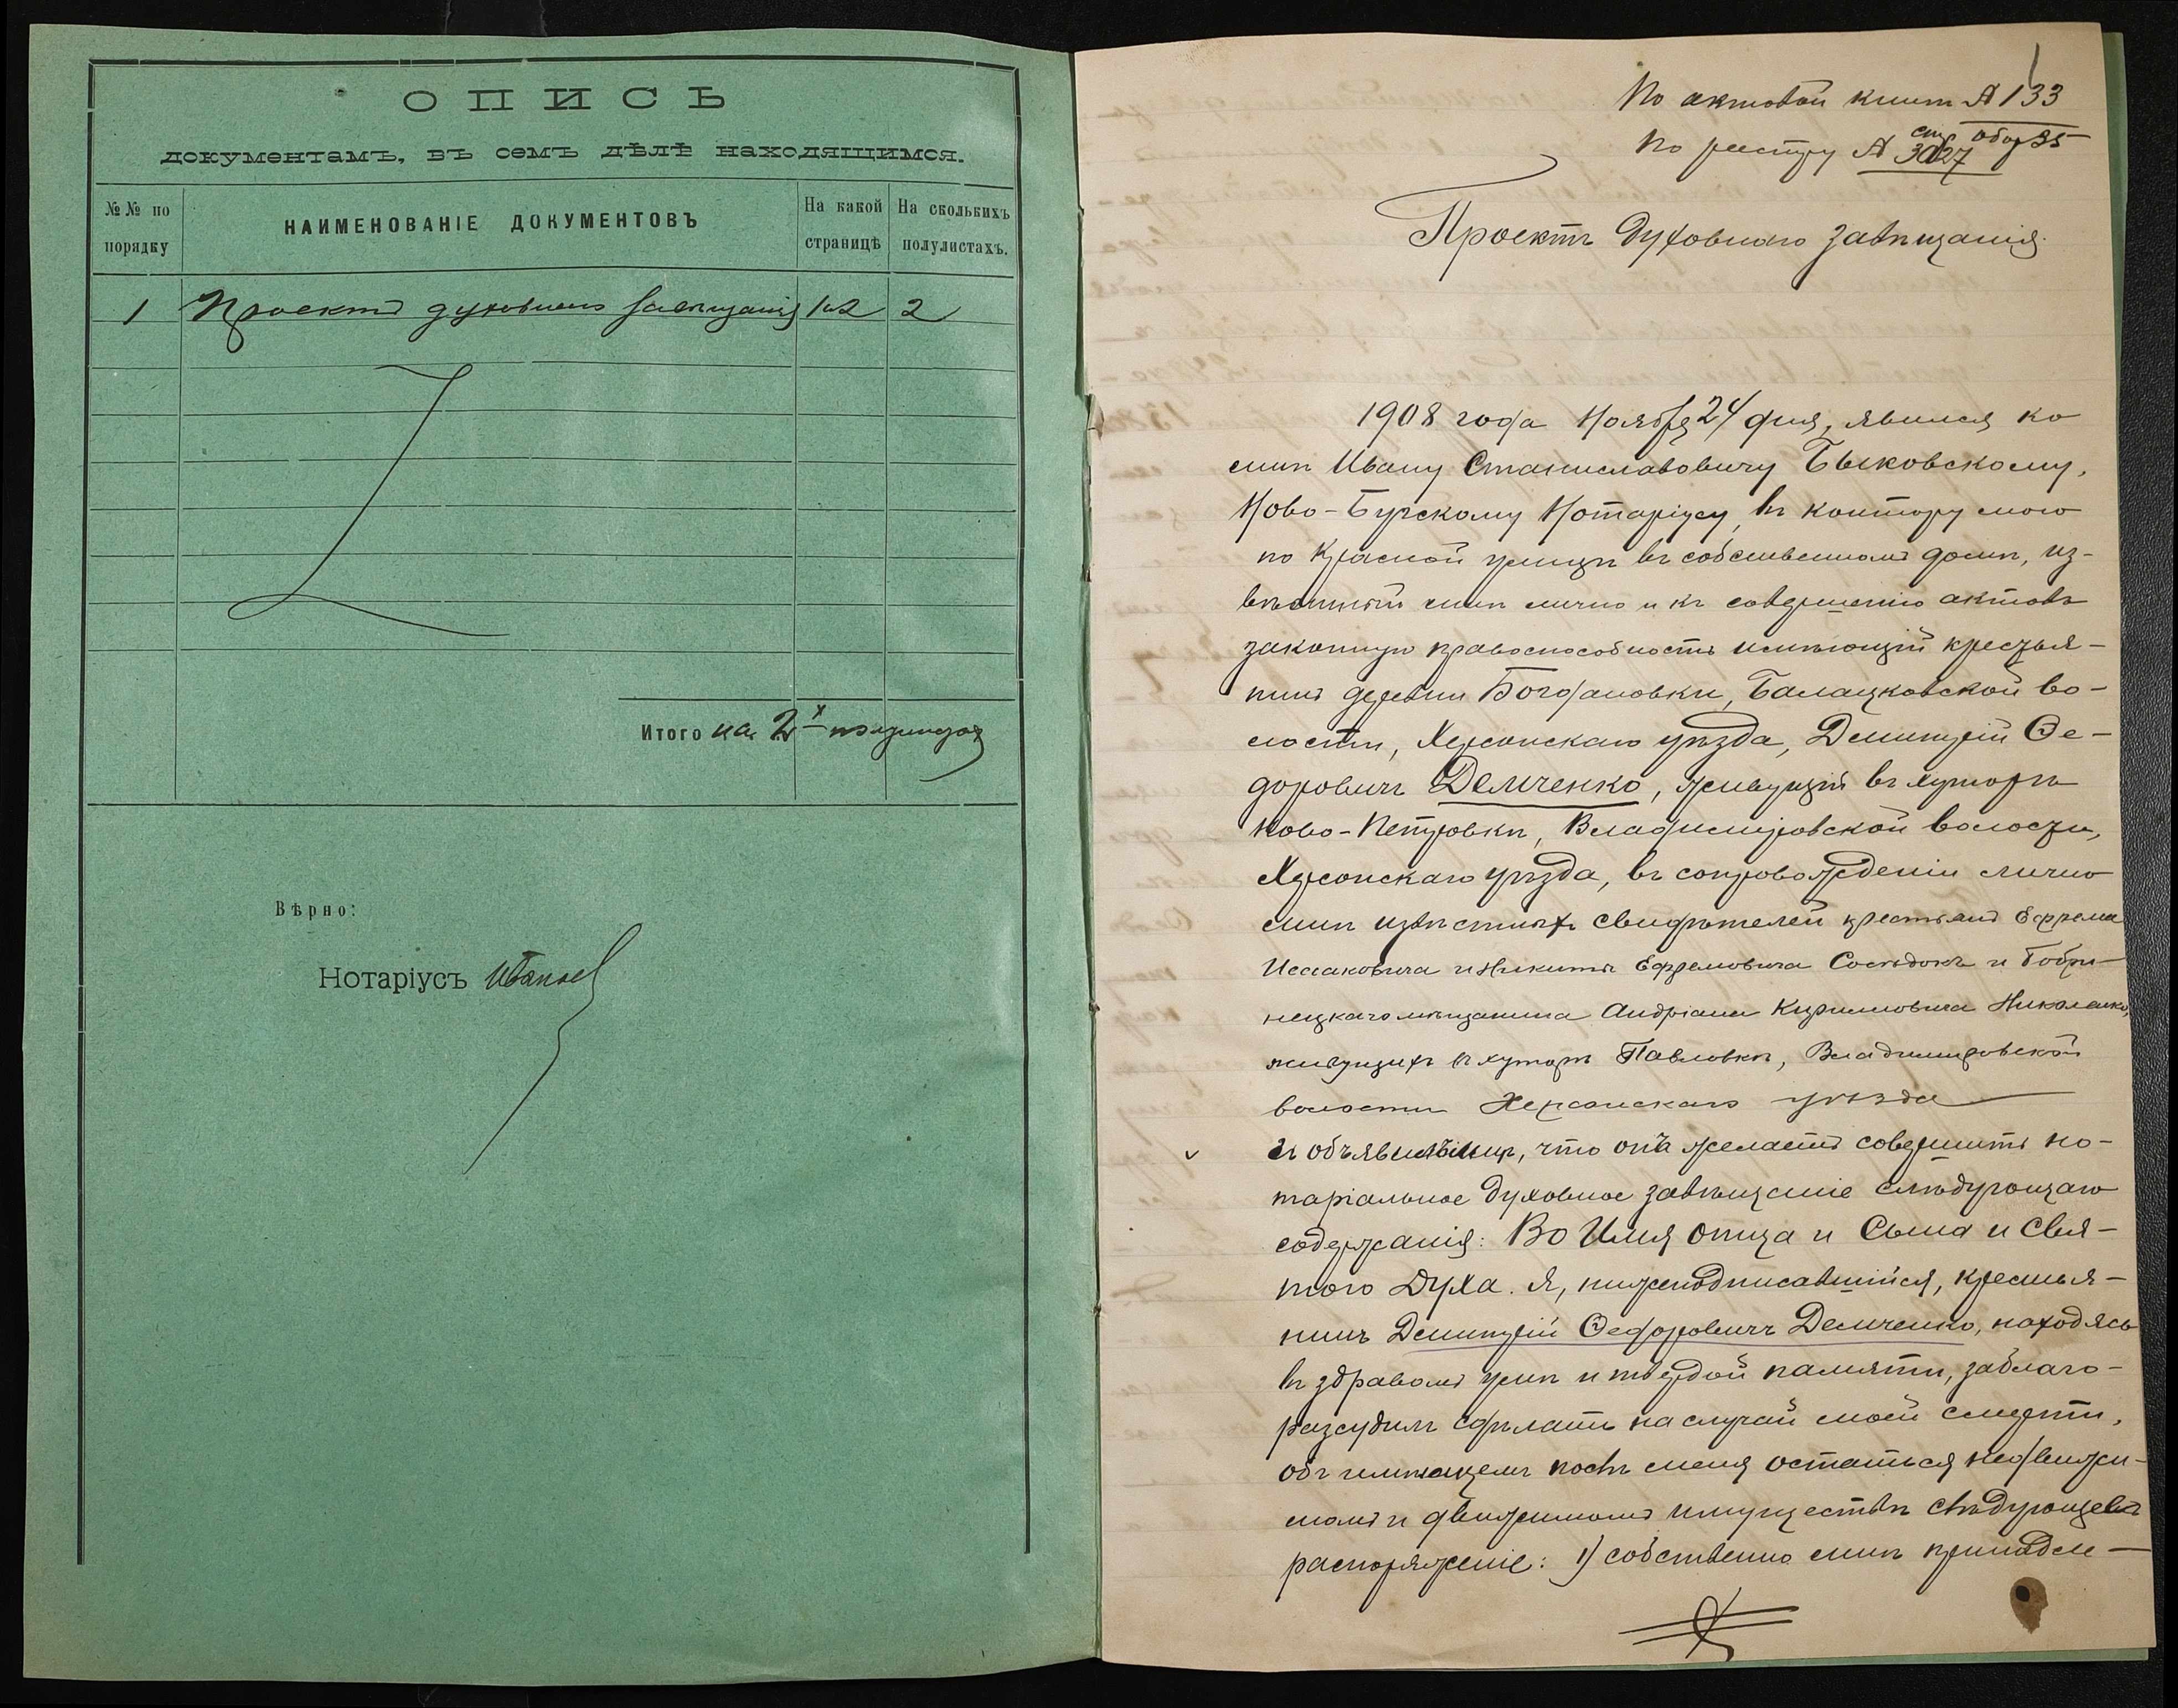 ОПИСЬ
документамъ, въ семъ дѣлѣ находящимся.
№№ по порядку
НАИМЕНОВАНІЕ ДОКУМЕНТОВЪ
На какой страницѣ
На сколькихъ полулистахъ.
1 Проектъ духовнаго завѣщанія 1-2 2
Итого на 2х полулистахъ
Вѣрно:
Нотаріусъ
По актовой книгѣ № 133
По реестру № 3027
Проектъ духовнаго завѣщанія.
1908 года Ноября 24 дня, явился ко
мнѣ Ивану Станиславовичу Быковскому,
Ново-Бугскому Нотаріусу, въ контору мою
по Красной улицѣ въ собственномъ домѣ, из-
вѣстный мнѣ лично и къ совершенію актовъ
законную правоспособность имѣющій крестья-
нинъ деревни Богдановки, Балацковской во-
лости, Херсонскаго уѣзда, Димитрій Ѳе-
доровичъ Демченко, живущій въ хуторѣ
Ново-Петровкѣ, Владимировской волости,
Херсонскаго уѣзда, въ сопровожденіи лично
мнѣ извѣстныхъ свидѣтелей крестьянъ Ефрема
Исааковича и Никиты Ефремовича и Бобри-
нецкаго мѣщанина Андріана Кирилловича Николаенко,
живущихъ въ хуторѣ Павловкѣ, Владимировской
волости Херсонскаго уѣзда
и объявилъ мнѣ, что онъ желаетъ совершить но-
таріальное духовное завѣщаніе слѣдующаго
содержанія: Во Имя Отца и Сына и Свя-
того Духа. Я, нижеподписавшійся, крестья-
нинъ Димитрій Ѳедоровичъ Демченко, находясь
въ здравомъ умѣ и твердой памяти, заблаго-
разсудилъ сдѣлать на случай моей смерти,
объ имѣющемъ послѣ меня остаться недвижи-
момъ и движимомъ имуществѣ слѣдующее
распоряженіе: 1) собственно мнѣ принадле-